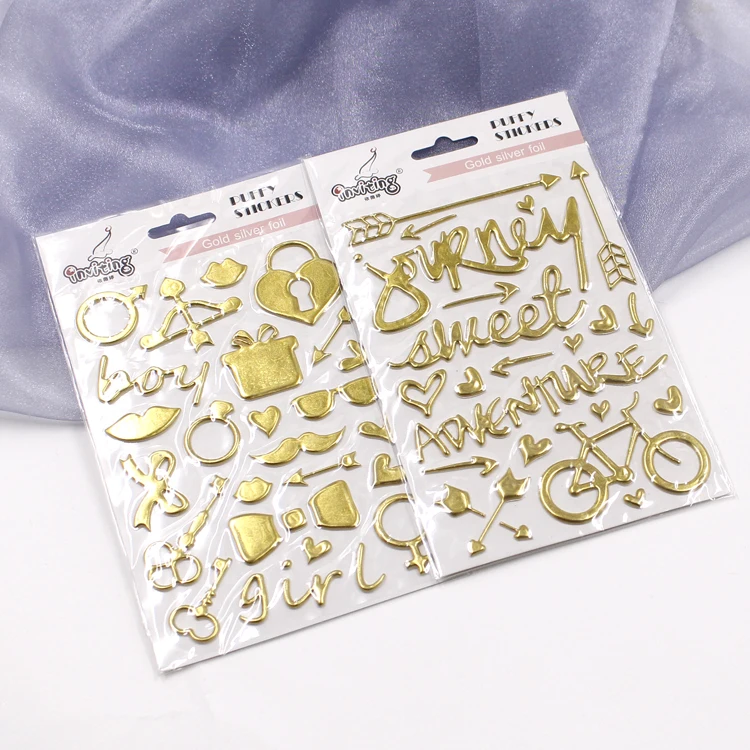 inviting®
PUFFY
STICKERS
Gold silver foil
boy
girl
inviting®
PUFFY
STICKERS
Gold silver foil
journey
sweet
ADVENTURE